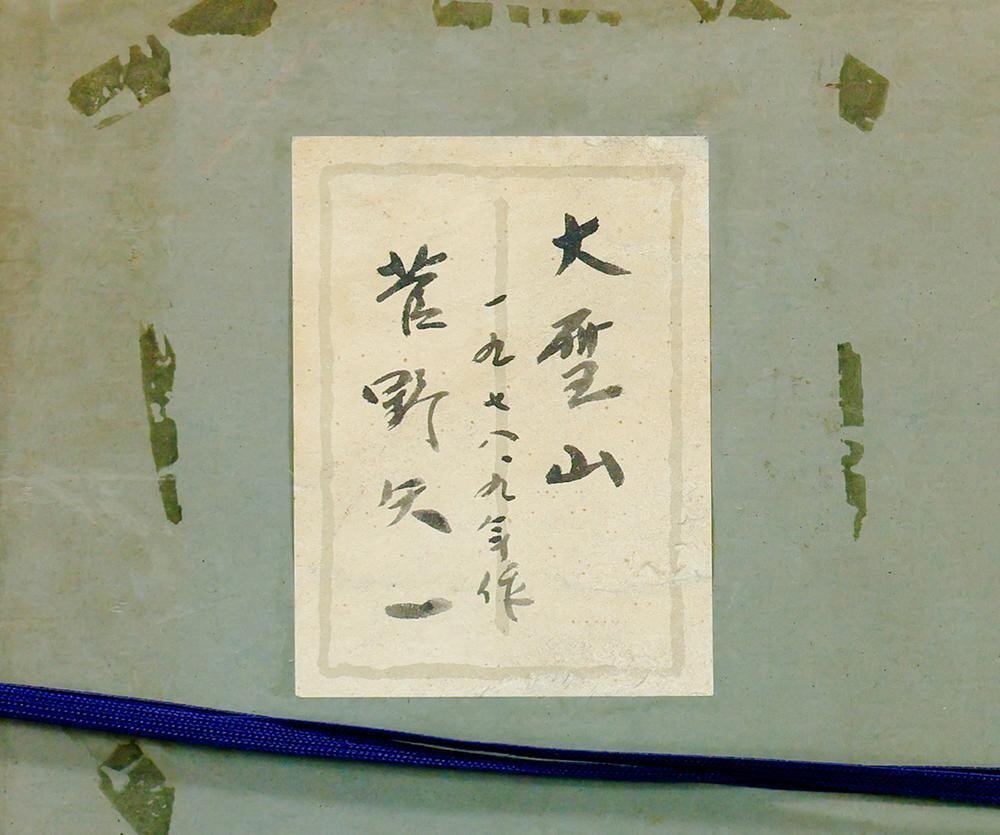 大聖山
一九七八・九年作
菅野矢一